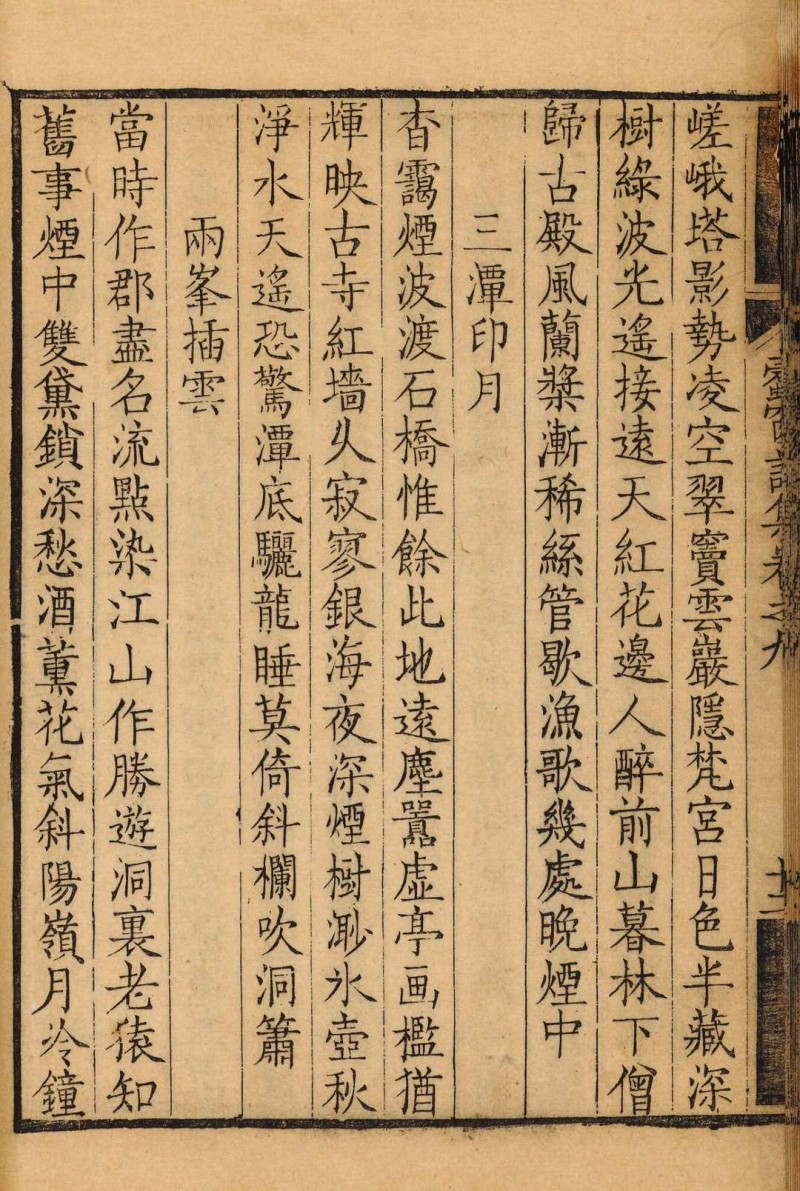 嵯峨塔影勢凌空翠竇雲巖隱梵宮日色半藏深
樹綠波光遙接遠天紅花邊人醉前山暮林下僧
歸古殿風蘭槳漸稀絲管歇漁歌幾處晚煙中
三潭印月
杳靄煙波渡石橋惟餘此地遠塵囂虛亭画檻猶
輝映古寺紅墻久寂寥銀海夜深煙樹渺氷壺秋
淨水天遙恐驚潭底驪龍睡莫倚斜欄吹洞簫
兩峯插雲
當時作郡盡名流點染江山作勝遊洞裏老猿知
舊事煙中雙黛鎖深愁酒薰花氣斜陽嶺月冷鐘